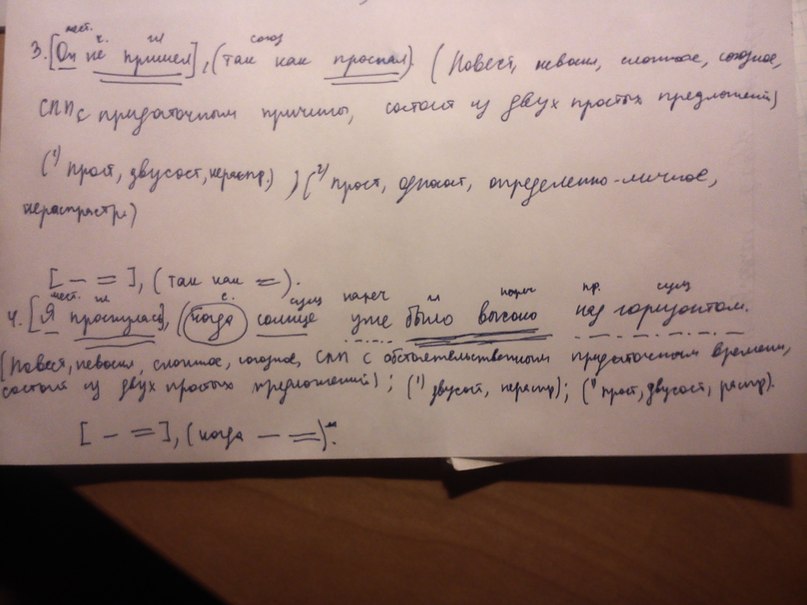 мест. ч. гл союз
3. [Он не пришел], (так как проспал). (Повест, невоскл, сложное, союзное,
СПП с придаточным причины, состоит из двух простых предложений)
(1) прост, двусост, нераспр.), (2) прост, односост, определенно-личное,
нераспростр.)
[ – = ], (так как = ).
мест. гл с. сущ нареч гл нареч пр. сущ
4. [Я проснулась], (когда солнце уже было высоко над горизонтом.
(Повест, невоскл, сложное, союзное, СПП с обстоятельственным придаточным времени,
состоит из двух простых предложений); (1) двусост, нераспр); ( прост, двусост, распр).
[ – = ], (когда – = ).